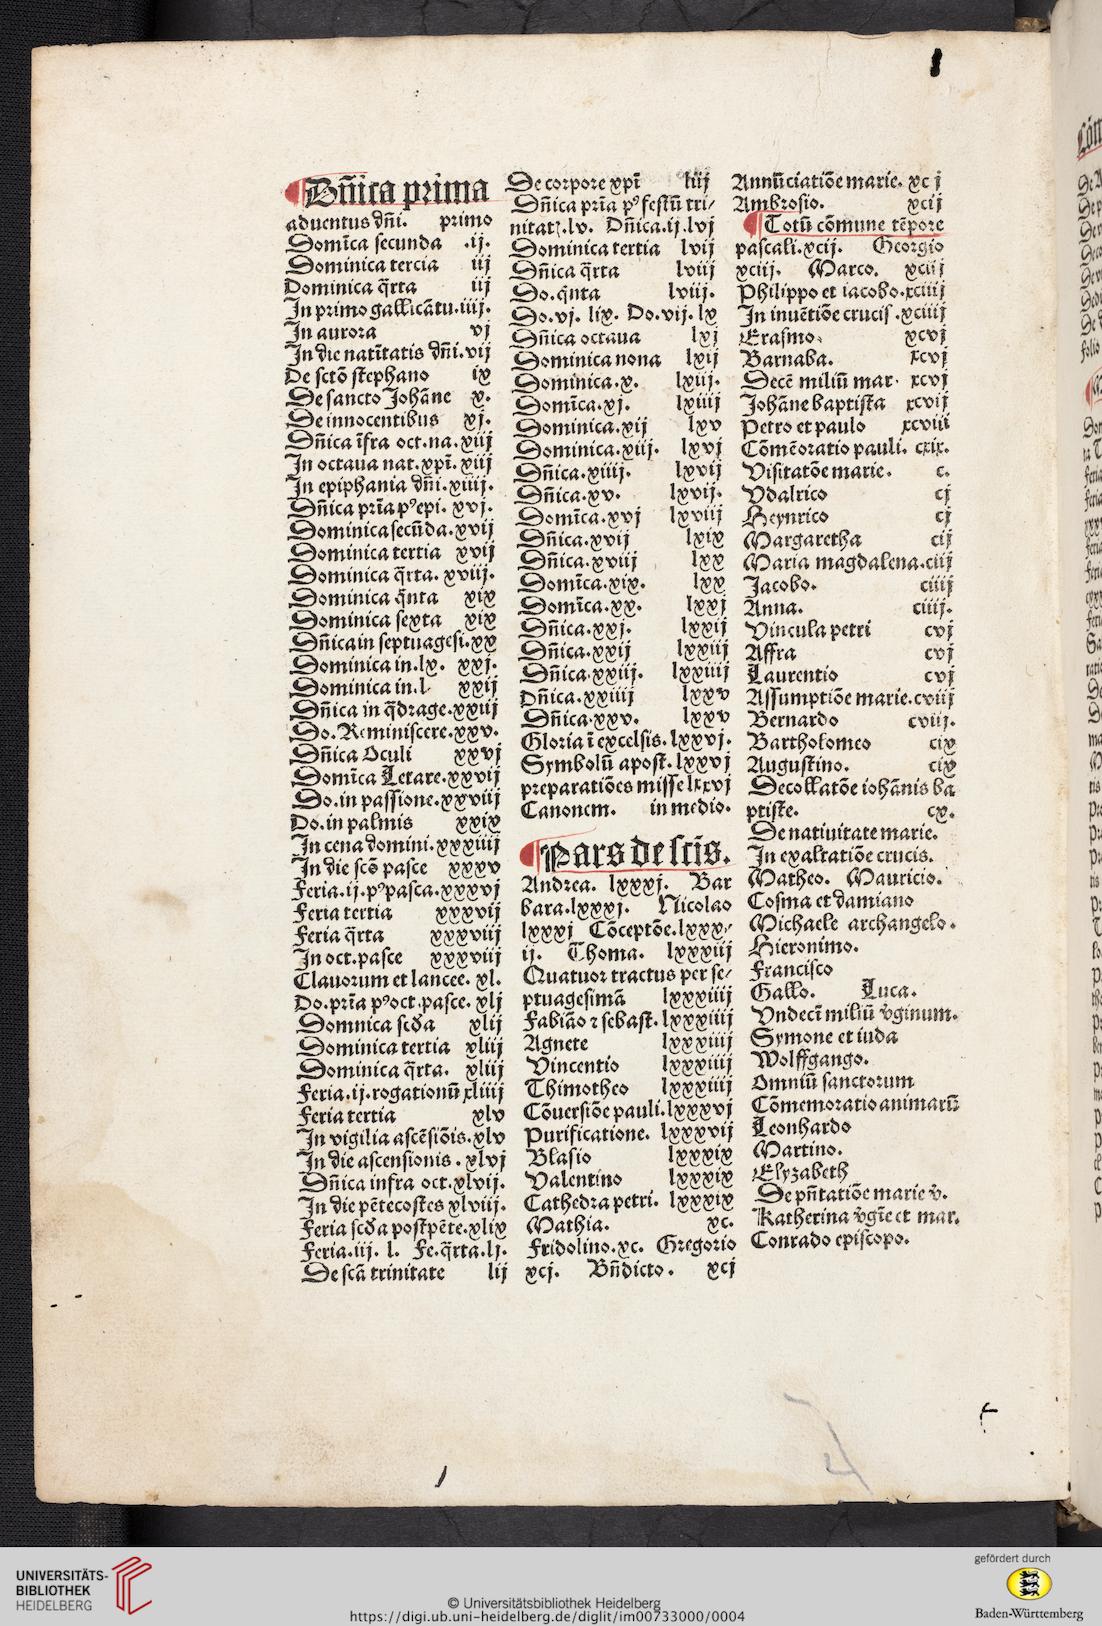 Dn̄ica prima
aduentus dn̄i. primo
Domīca secunda .ij.
Dominica tercia iij
Dominica q̄rta iij
In primo gallicātu.iiij.
In aurora vj
In die natītatis dn̄i.vij
De sctō stephano ix
De sancto Johāne x.
De innocentibus xj.
Dn̄ica īfra oct.na.xiij
In octaua nat.xpī.xiij
In epiphania dn̄i.xiiij.
Dn̄ica prīa pꝰepi.xvj.
Dominica secūda.xvij
Dominica tertia xvij
Dominica q̄rta.xviij.
Dominica q̄nta xix
Dominica sexta xix
Dn̄ica in septuagesi.xx
Dominica in.lx. xxj.
Dominica in.l xxij
Dn̄ica in q̄drage.xxiij
Do.Reminiscere.xxv.
Dn̄ica Oculi xxvj
Domīca Letare.xxvij
Do.in passione.xxviij
Do.in palmis xxix
In cena domini.xxxiiij
In die scō pasce xxxv
Feria.ij.pꝰpasca.xxxvj
Feria tertia xxxvij
Feria q̄rta xxxviij
In oct.pasce xxxviij
Clauorum et lancee.xl.
Do.prīa pꝰoct.pasce.xlj
Domnica scd̄a xlij
Dominica tertia xliij
Dominica q̄rta. xliij
Feria.ij.rogationū xliiij
Feria tertia xlv
In vigilia ascēsiōis.xlv
In die ascensionis.xlvj
Dn̄ica infra oct.xlvij.
In die pētecostes xlviij.
Feria scd̄a post pēte.xlix
Feria.iij. l. Fe.q̄rta.lj.
De scā trinitate lij
De corpore xpī liij
Dn̄ica prīa pꝰ festū tri⸗
nitatꝫ.lv. Dn̄ica.ij.lvj
Dominica tertia lvij
Dn̄ica q̄rta lviij
Do.q̄nta lviij.
Do.vj. lix. Do.vij.lx
Dn̄ica octaua lxj
Dominica nona lxij
Dominica.x. lxiij.
Domīca.xj. lxiiij
Dominica.xij lxv
Dominica.xiij. lxvj
Dn̄ica.xiiij. lxvij
Dn̄ica.xv. lxvij.
Domīca.xvj lxviij
Dn̄ica.xvij lxix
Dn̄ica.xviij lxx
Domīca.xix. lxx
Domīca.xx. lxxj
Dn̄ica.xxj. lxxij
Dn̄ica.xxij lxxiij
Dn̄ica.xxiij. lxxiiij
Dn̄ica.xxiiij lxxv
Dn̄ica.xxv. lxxv
Gloria ī excelsis.lxxvj.
Symbolū apost.lxxvj
preparatiōes misse lxxvj
Canonem. in medio.
Pars de scīs.
Andrea. lxxxj. Bar
bara.lxxxj. Nicolao
lxxxj Cōceptōe.lxxx⸗
ij. Thoma. lxxxiij
Quatuor tractus per se⸗
ptuagesimā lxxxiiij
Fabiāo ⁊ sebast.lxxxiiij
Agnete lxxxiiij
Vincentio lxxxiiij
Thimotheo lxxxiiij
Cōuersiōe pauli.lxxxvj
Purificatione. lxxxvij
Blasio lxxxix
Valentino lxxxix
Cathedra petri. lxxxix
Mathia. xc.
Fridolino.xc. Gregorio
xcj. Bn̄dicto. xcj
Annūciatiōe marie. xcj
Ambrosio. xcij
Totū cōmune tēpore
pascali.xcij. Georgio
xciij. Marco. xciij
Philippo et iacobo.xciiij
In inuētiōe crucis.xciiij
Erasmo. xcvj
Barnaba. xcvj
Decē miliū mar. xcvj
Johāne baptista xcvij
Petro et paulo xcviii
Cōmēoratio pauli. cxix.
Visitatōe marie. c.
Vdalrico cj
Heynrico cj
Margaretha cij
Maria magdalena.ciij
Jacobo. ciiij
Anna. ciiij.
Vincula petri cvj
Affra cvj
Laurentio cvj
Assumptiōe marie.cviij
Bernardo cviij.
Bartholomeo cix
Augustino. cix
Decollatōe iohānis ba
ptiste. cx.
De natiuitate marie.
In exaltatiōe crucis.
Matheo. Mauricio.
Cosma et damiano
Michaele archangelo.
Hieronimo.
Francisco
Gallo. Luca.
Vndecī miliū v̄ginum.
Symone et iuda
Wolffgango.
Omniū sanctorum
Cōmemoratio animarū
Leonhardo
Martino.
Elyzabeth
De pn̄tatiōe marie v̄.
Katherina v̄gīe et mar.
Conrado episcopo.
UNIVERSITÄTS-
BIBLIOTHEK
HEIDELBERG
© Universitätsbibliothek Heidelberg
https://digi.ub.uni-heidelberg.de/diglit/im00733000/0004
gefördert durch
Baden-Württemberg